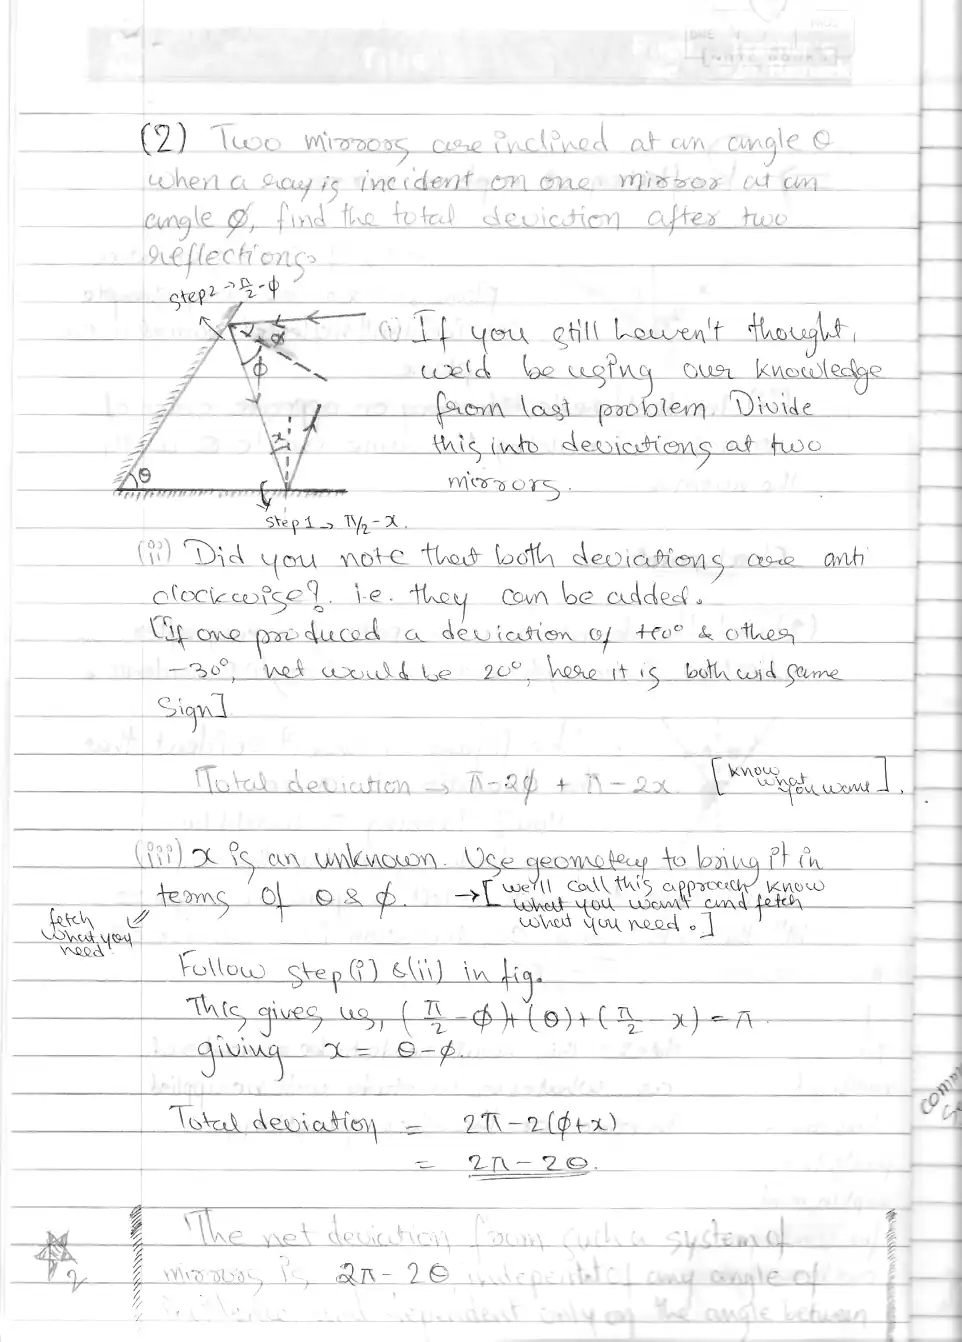 (2) Two mirrors are inclined at an angle θ
when a ray is incident on one mirror at an
angle ϕ, find the total deviation after two
reflections.
step2 → π/2 - ϕ
(i) If you still haven't thought,
we'd be using our knowledge
from last problem. Divide
this into deviations at two
mirrors.
ϕ
ϕ
x
θ
step 1 → π/2 - x.
(ii) Did you note that both deviations are anti
clockwise? i.e. they can be added.
[If one produced a deviation of & other
-30°, net would be 20°, here it is both wid same
sign]
Total deviation → π-2ϕ + π-2x. [know what you want].
(iii) x is an unknown. Use geometry to bring it in
terms of θ & ϕ. → [we'll call this approach, know
what you want and fetch
what you need.]
fetch
what you
need
Follow step (i) & (ii) in fig.
This gives us, (π/2 - ϕ) + (θ) + (π/2 - x) = π.
giving x = θ-ϕ.
Total deviation = 2π-2(ϕ+x)
= 2π-2θ.
The net deviation from such a system of
2
mirrors is 2π-2θ, of any angle of
and dependent only on the angle between